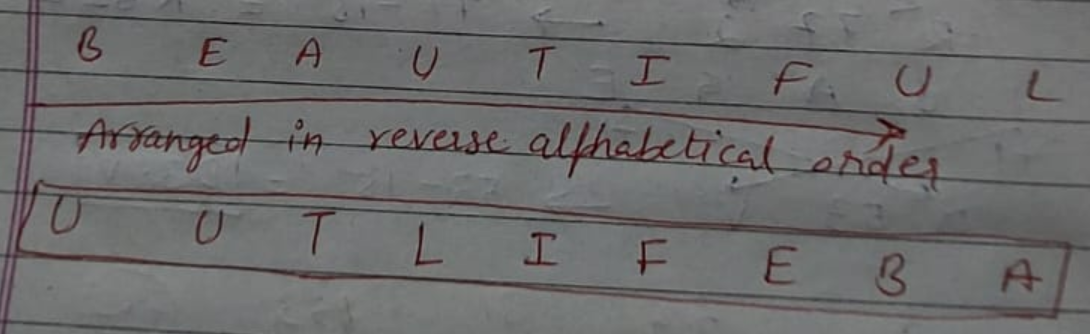 B E A U T I F U L
Arranged in reverse alphabetical order
U U T L I F E B A